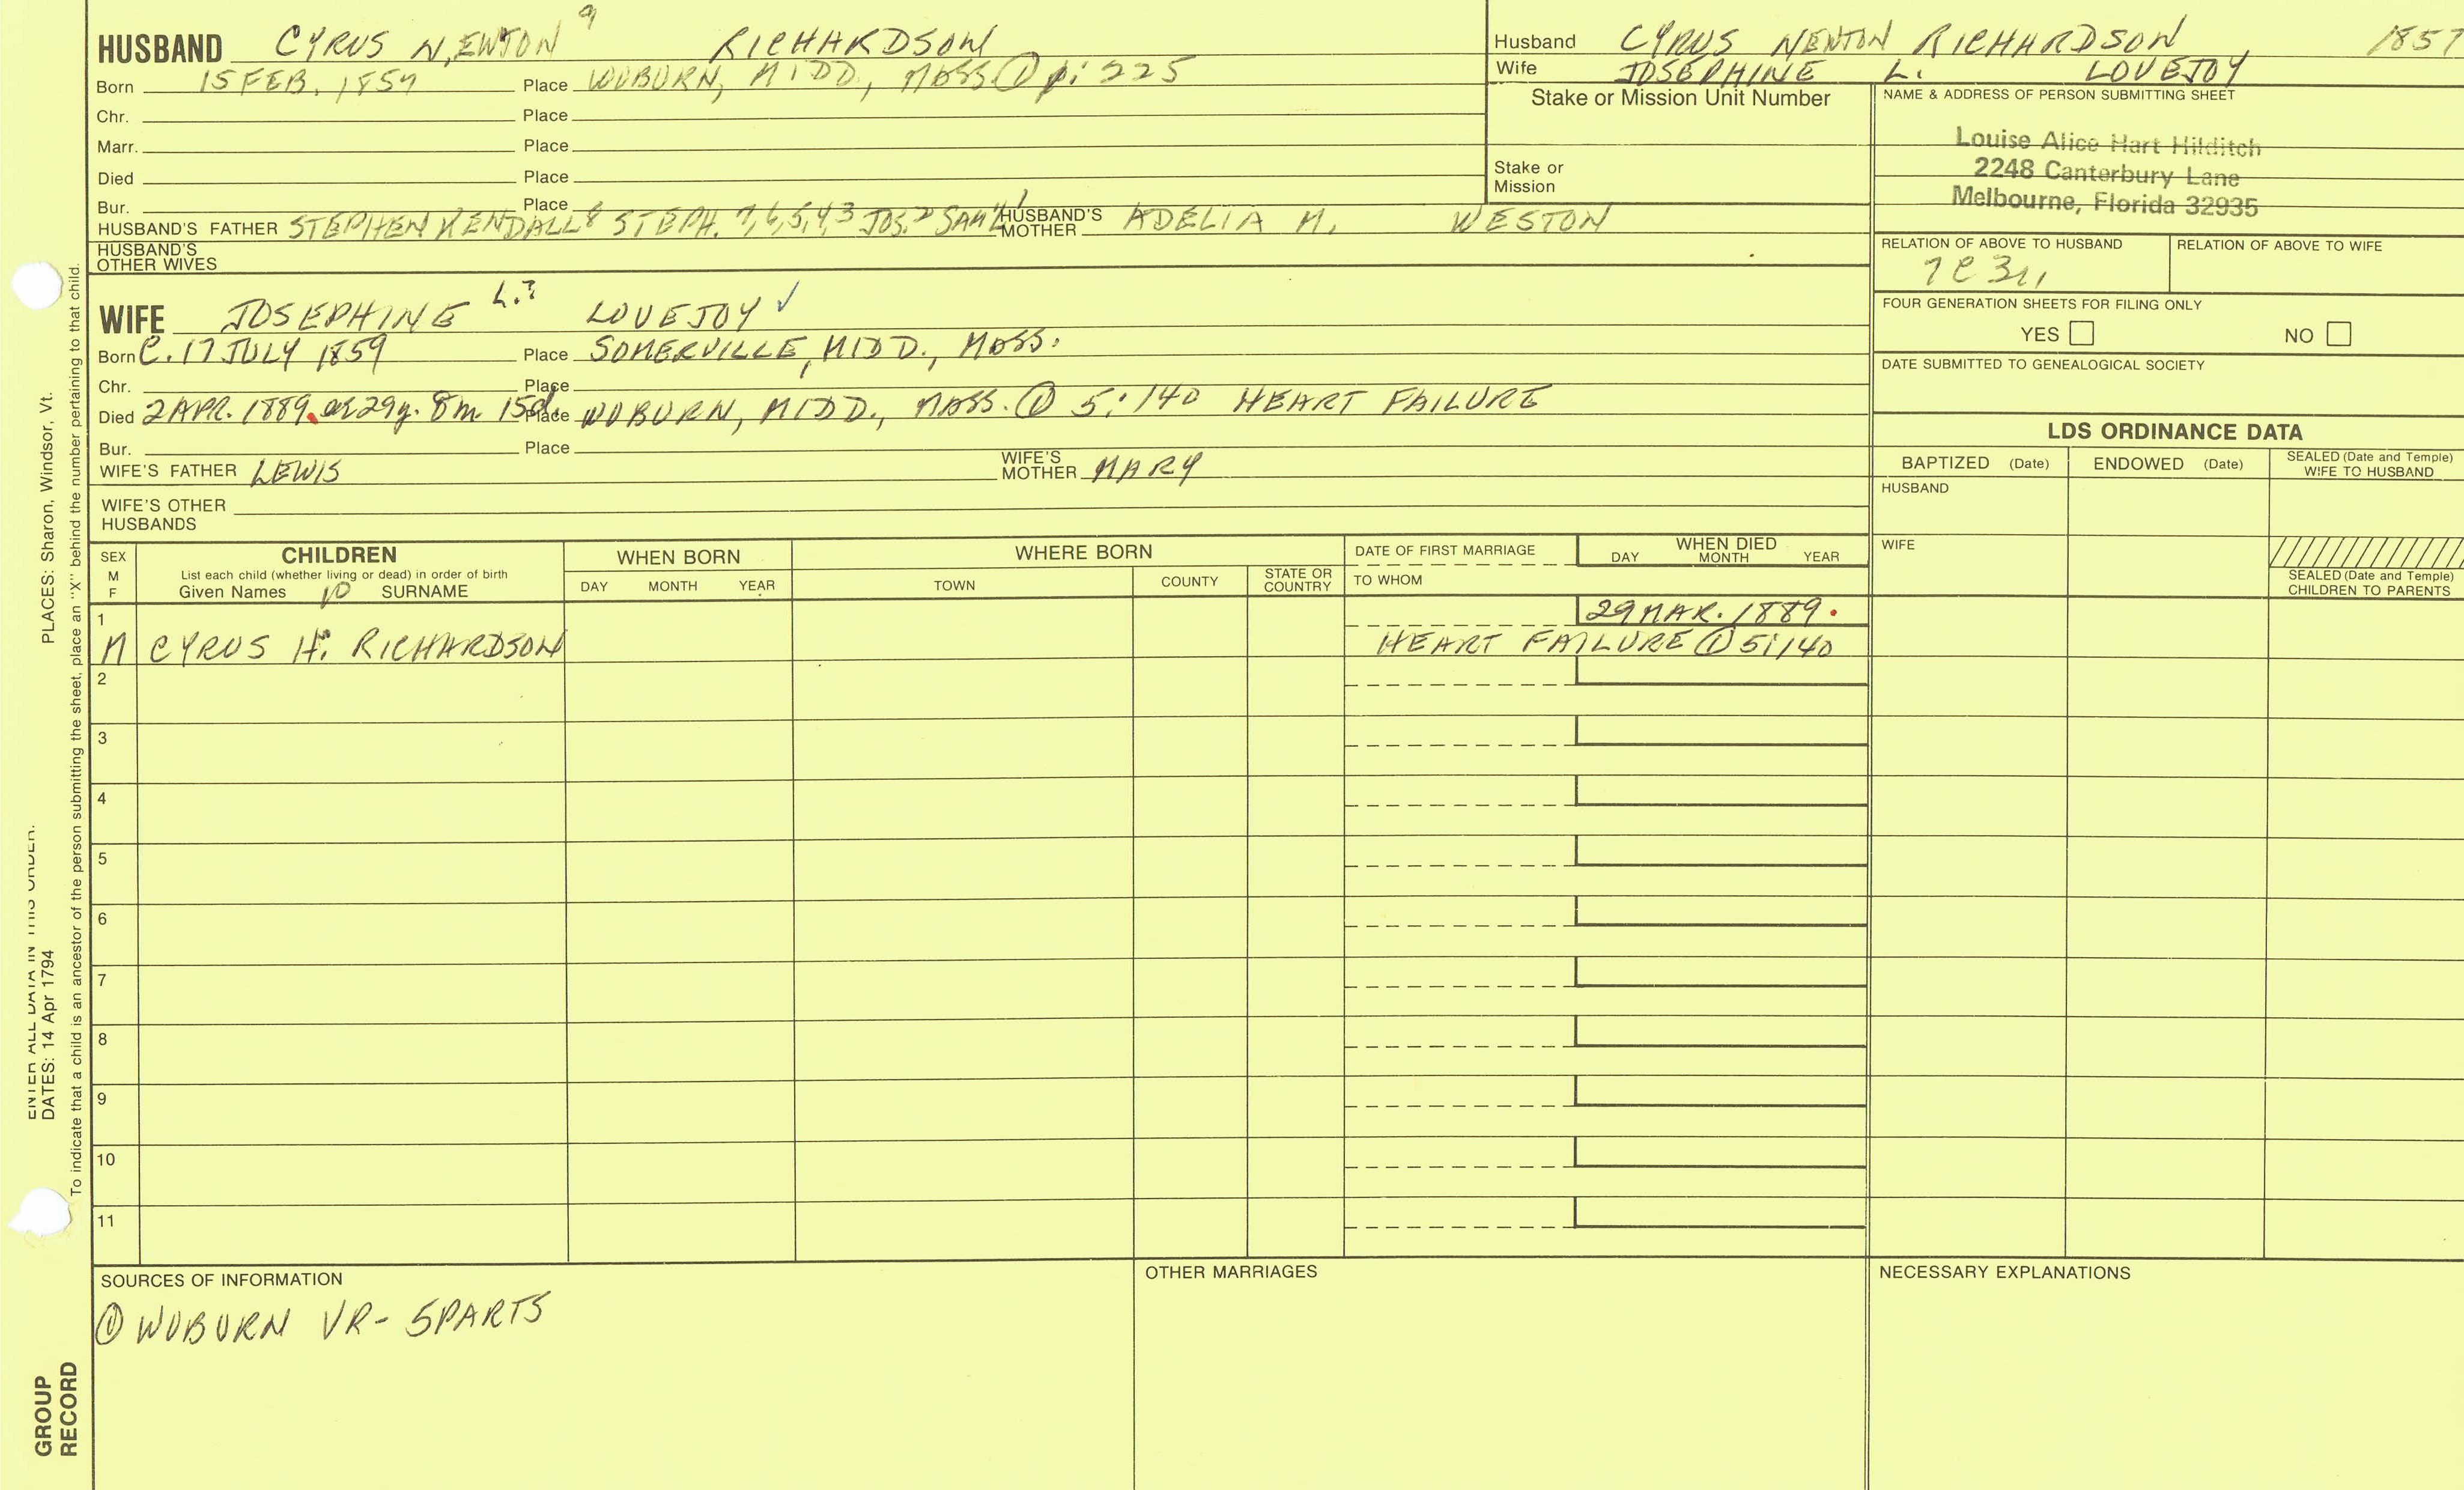 HUSBAND CYRUS NEWTON 9 RICHARDSON
Born 15 FEB. 1857 Place WOBURN, MIDD., MASS ① p: 225
Chr. Place
Marr. Place
Died Place
Bur. Place
HUSBAND'S FATHER STEPHEN KENDALL 8 STEPH. 7,6,5,4,3 JOS. 2 SAM'L 1 HUSBAND'S MOTHER ADELIA M. WESTON
HUSBAND'S OTHER WIVES
WIFE JOSEPHINE L.? LOVEJOY ✓
Born C. 17 JULY 1859 Place SOMERVILLE, MIDD., MASS.
Chr. Place
Died 2 APR. 1889. ae 29y. 8m. 15d. Place WOBURN, MIDD., MASS. ① 5:140 HEART FAILURE
Bur. Place
WIFE'S FATHER LEWIS WIFE'S MOTHER MARY
WIFE'S OTHER HUSBANDS
Husband CYRUS NEWTON RICHARDSON, 1857
Wife JOSEPHINE L. LOVEJOY
Stake or Mission Unit Number
Stake or Mission
NAME & ADDRESS OF PERSON SUBMITTING SHEET
Louise Alice Hart Hilditch
2248 Canterbury Lane
Melbourne, Florida 32935
RELATION OF ABOVE TO HUSBAND RELATION OF ABOVE TO WIFE
7C3r,
FOUR GENERATION SHEETS FOR FILING ONLY
YES NO
DATE SUBMITTED TO GENEALOGICAL SOCIETY
LDS ORDINANCE DATA
BAPTIZED (Date) ENDOWED (Date) SEALED (Date and Temple) WIFE TO HUSBAND
HUSBAND
WIFE
SEALED (Date and Temple) CHILDREN TO PARENTS
SEX M F
CHILDREN
List each child (whether living or dead) in order of birth
Given Names 10 SURNAME
WHEN BORN
DAY MONTH YEAR
WHERE BORN
TOWN COUNTY STATE OR COUNTRY
DATE OF FIRST MARRIAGE
TO WHOM
WHEN DIED
DAY MONTH YEAR
1 29 MAR. 1889.
M CYRUS H. RICHARDSON HEART FAILURE ① 5:140
2
3
4
5
6
7
8
9
10
11
SOURCES OF INFORMATION
① WOBURN VR- 5PARTS
OTHER MARRIAGES
NECESSARY EXPLANATIONS
ENTER ALL DATA IN THIS ORDER.
DATES: 14 Apr 1794 PLACES: Sharon, Windsor, Vt.
To indicate that a child is an ancestor of the person submitting the sheet, place an "X" behind the number pertaining to that child.
GROUP
RECORD